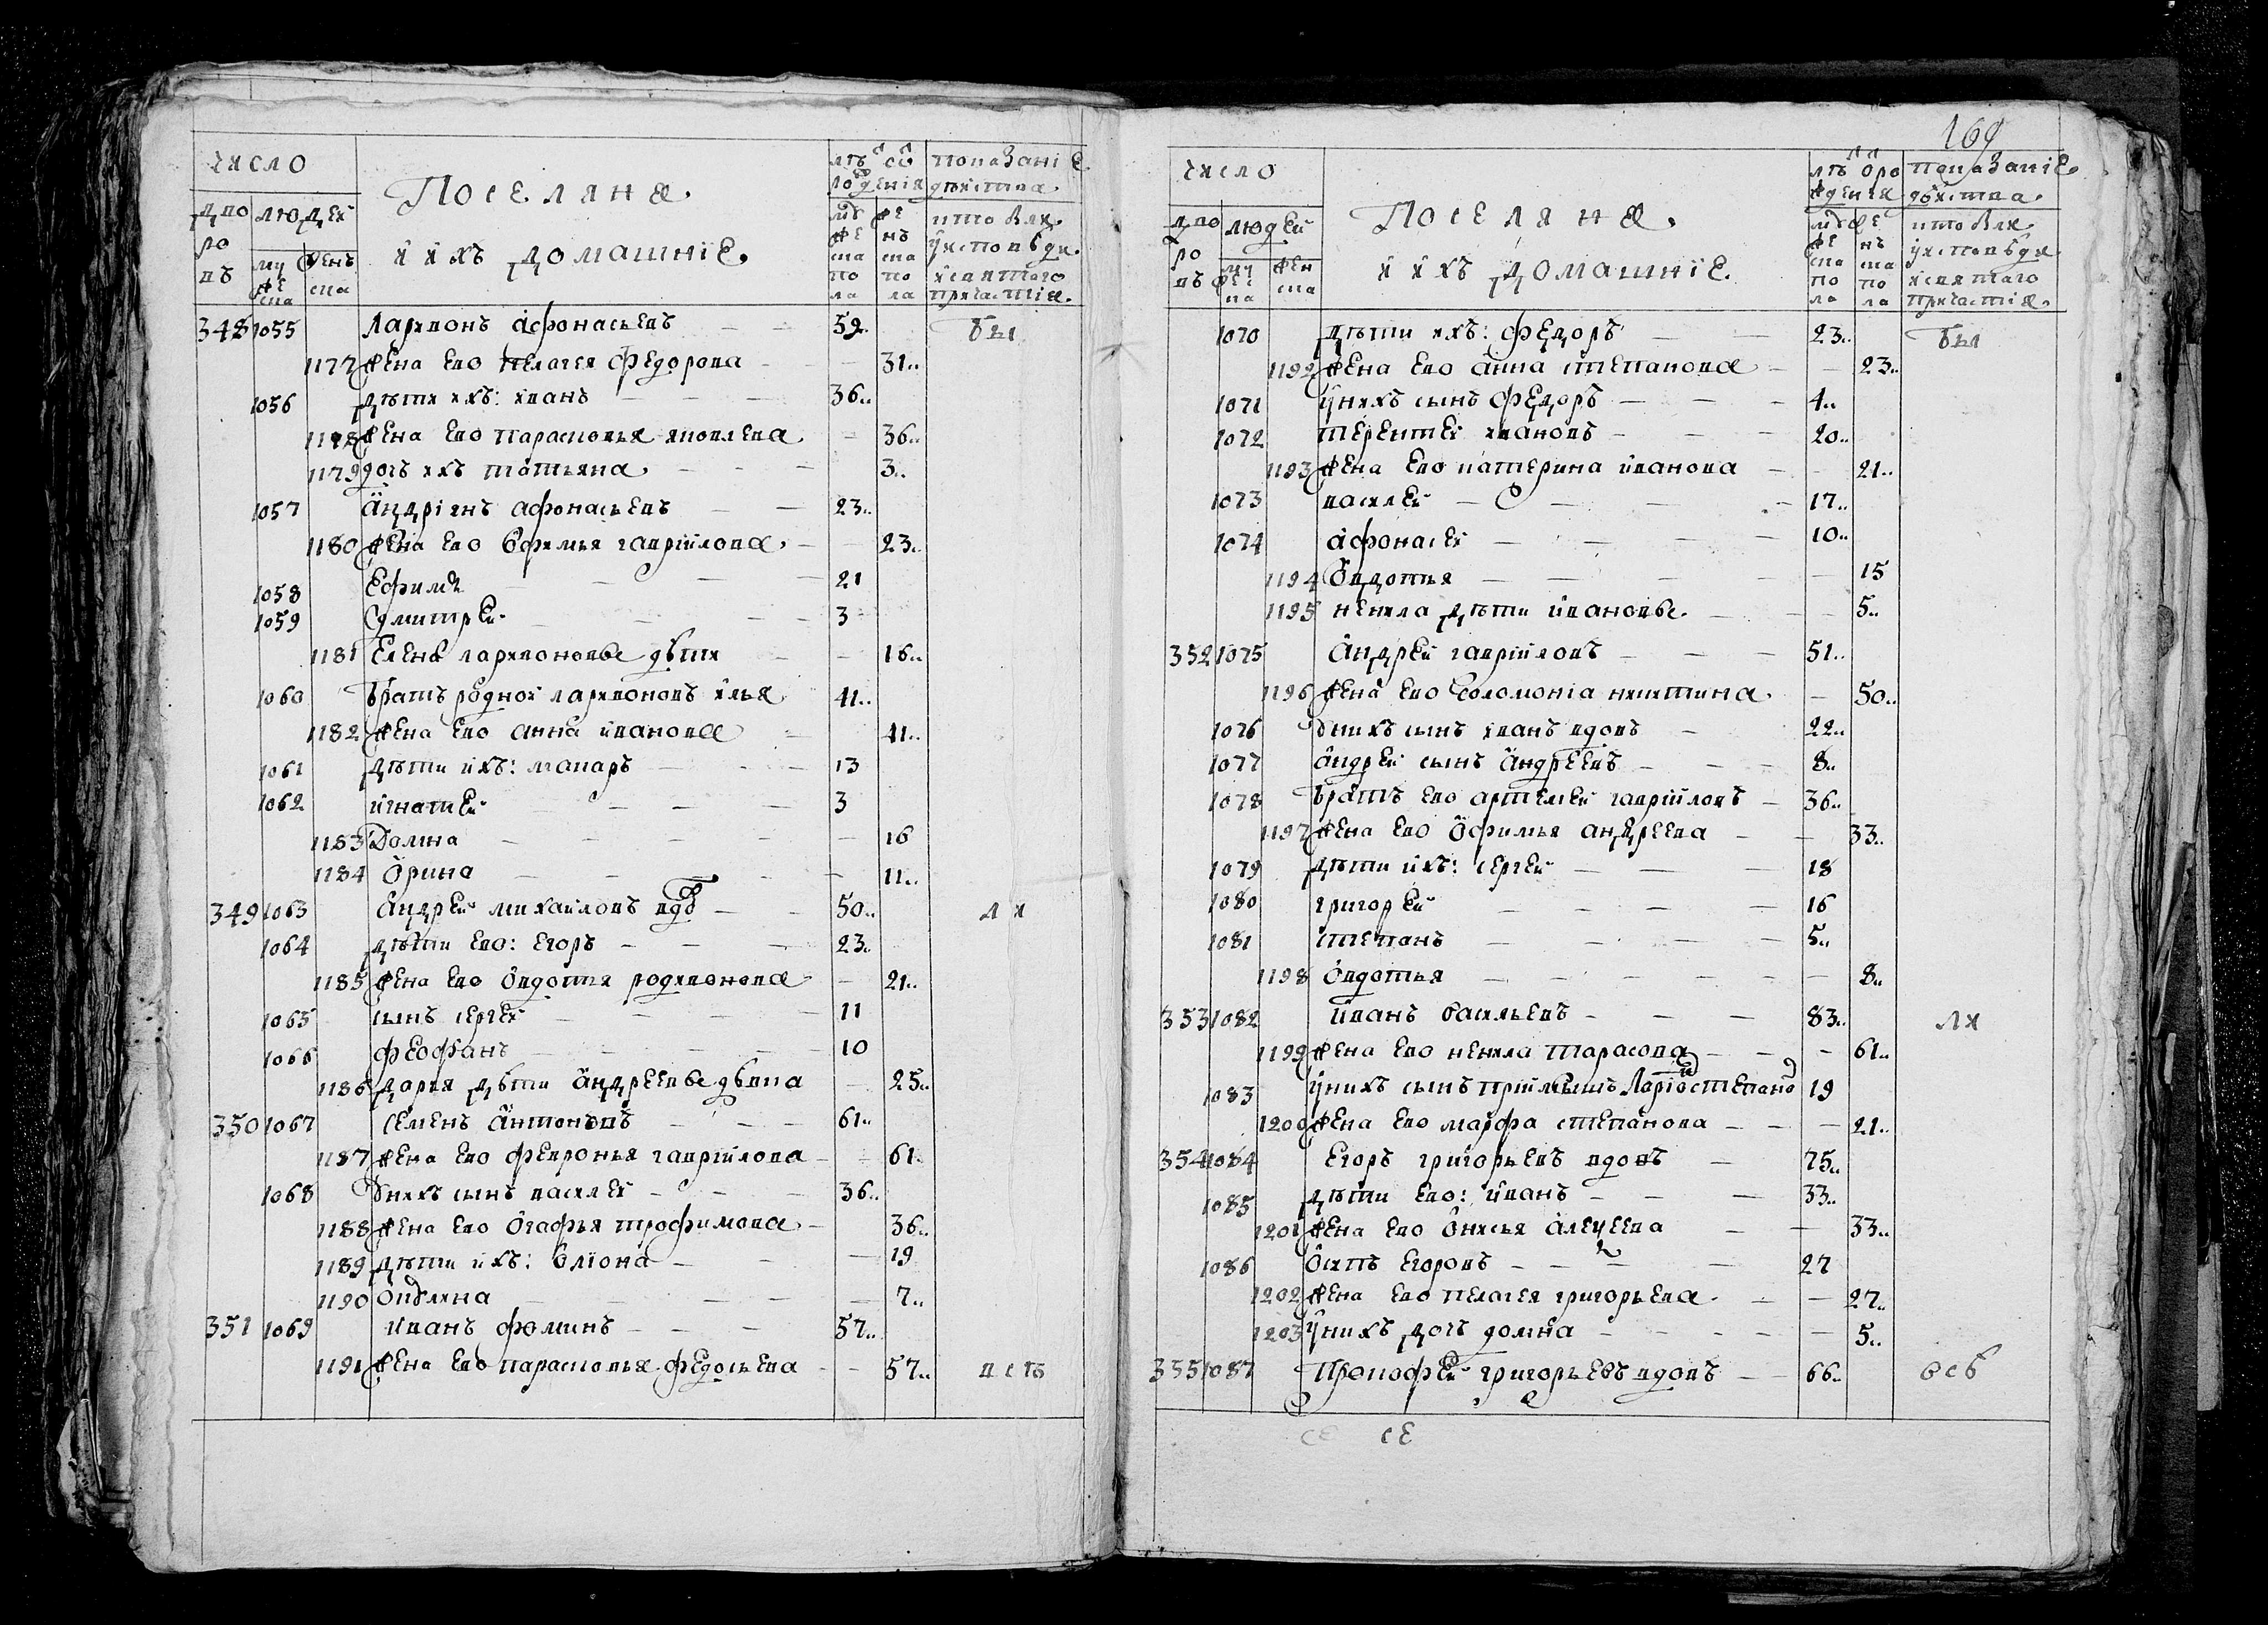 число
Поселяня
ихъ домашніе.
лѣ ѿ рожденія
показаніе дѣйства
дворовъ
людей
мужеска
женска
мужеска пола
женска пола
кто былъ у исповѣди и святаго причастія.
348 1055 Ларивонъ афонасьевъ 59.. бы
1177 жена ево пелагея федорова 31..
1056 дѣти ихъ: иванъ 36..
1178 жена ево парасковья яковлева 36..
1179 дочь ихъ татьяна 3..
1057 андріянъ афонасьевъ 23..
1180 жена ево ефимья гаврилова 23..
1058 Ефимъ 21
1059 дмитрей 3
1181 Елена ларивоновы дѣти 16..
1060 братъ родной ларивоновъ илья 41..
1182 жена ево анна иванова 41..
1061 дѣти ихъ: макаръ 13
1062 игнатей 3
1183 Домна 16
1184 орина 11..
349 1063 андрей михайловъ вдовъ 50..
1064 дѣти ево: егоръ 23..
1185 жена ево овдотья родивонова 21..
1065 сынъ сергей 11
1066 феофанъ 10
1186 дарья дѣти андреевы дѣвка 25..
350 1067 семенъ антоновъ 61..
1187 жена ево февронья гаврилова 61.
1068 у нихъ сынъ василей 36..
1188 жена ево огафья трофимова 36..
1189 дѣти ихъ: олiона 19
1190 окулина 7..
351 1069 иванъ фоминъ 57..
1191 жена ево парасковья федосьева 57..
169
число
Поселяня
ихъ домашніе.
лѣ ѿ рожденія
показаніе дѣйства
дворовъ
людей
мужеска
женска
мужеска пола
женска пола
кто былъ у исповѣди и святаго причастія.
1070 дѣти ихъ: федоръ 23.. бы
1192 жена ево анна степанова 23..
1071 у нихъ сынъ федоръ 4..
1072 терентей ивановъ 20..
1193 жена ево катерина иванова 21..
1073 василей 17..
1074 афонасей 10..
1194 овдотья 15
1195 ненила дѣти ивановы 5..
352 1075 андрей гавриловъ 51..
1196 жена ево соломоніа никитина 50..
1076 у нихъ сынъ иванъ вдовъ 22..
1077 андрей сынъ андреевъ 8..
1078 братъ ево артемей гавриловъ 36..
1197 жена ево офимья андреева 33..
1079 дѣти ихъ: сергей 18
1080 григорей 16
1081 степанъ 5..
1198 овдотья 8..
353 1082 иванъ васильевъ 83..
1199 жена ево ненила тарасова 61..
1083 у нихъ сынъ приймышъ Ларіонъ степановъ 19
1200 жена ево марфа степанова 21..
354 1084 егоръ григорьевъ вдовъ 75..
1085 дѣти ево: иванъ 33..
1201 жена ево онисья алексеева 33..
1086 осипъ егоровъ 27
1202 жена ево пелагея григорьева 27..
1203 у нихъ дочь домна 5..
355 1087 Прокофей григорьевъ вдовъ 66..
се